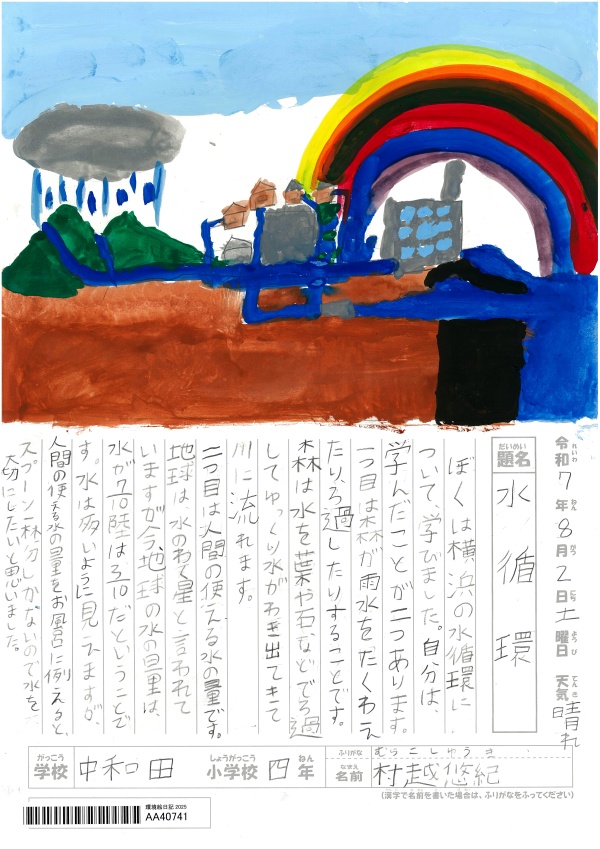 令和7年8月2日土曜日 天気晴れ
れいわ ねん がつ にち ようび てんき
だいめい
題名 水循環
ぼくは横浜の水循環に
ついて、学びました。自分は、
学んだことが二つあります。
一つ目は森が雨水をたくわえ
たり、ろ過したりすることです。
森は水を葉や石などでろ過
してゆっくり水がわき出てきて
川に流れます。
二つ目は人間の使える水の量です。
地球は、水のわく星と言われて
いますが今地球の水の量は、
水が7/10陸は3/10だということで
す。水は多いように見えますが、
人間の使える水の量をお風呂に例えると、
スプーン一杯分しかないので水を
大切にしたいと思いました。
がっこう しょうがっこう ねん
学校 中和田 小学校 四年
ふりがな むらこしゆうき
なまえ
名前 村越悠紀
(漢字で名前を書いた場合は、ふりがなをふってください)
環境絵日記 2025
AA40741